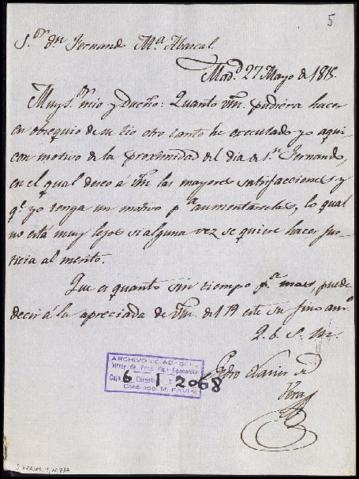 5
S.or Dn Fernand. M.a Abarcal
Mad.d 27 Mayo de 1815.
Muy S.or mio y Dueño: Quanto Vm. pudiera hacer
en obsequio de su tio otro tanto he executado yo aqui
con motivo de la proximidad del dia de S.n Fernando,
en el qual deseo á Vm las mayores satisfacciones y
q.e yo tenga un motivo p.a aumentarselas, lo qual
no está muy lejos si alguna vez se quiere hacer jus-
ticia al merito.
Que es quanto sin tiempo p.a mas, puede
decir á la apreciada de Vm. del 19 este su fino am.o
Q. b. S. M.
Pedro Xavier de
Vera
ARCHIVO DE
6 1 2068